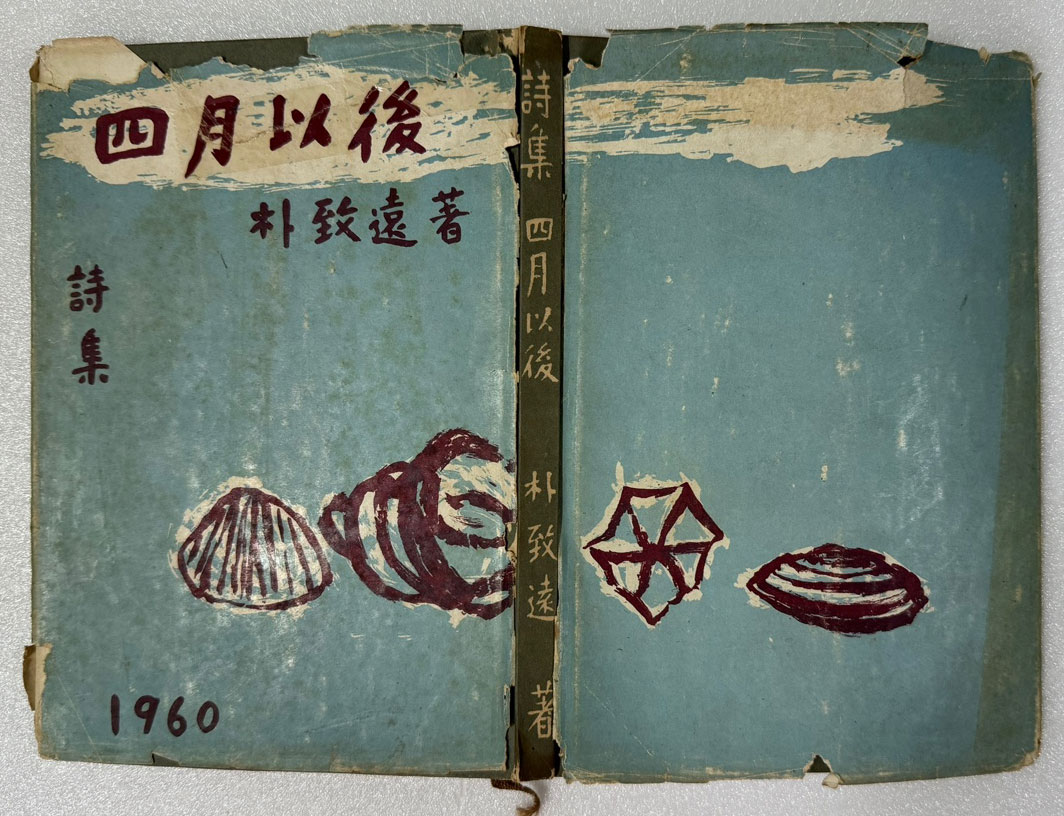 四月以後
朴致遠著
詩集
1960
詩集 四月以後 朴致遠 著